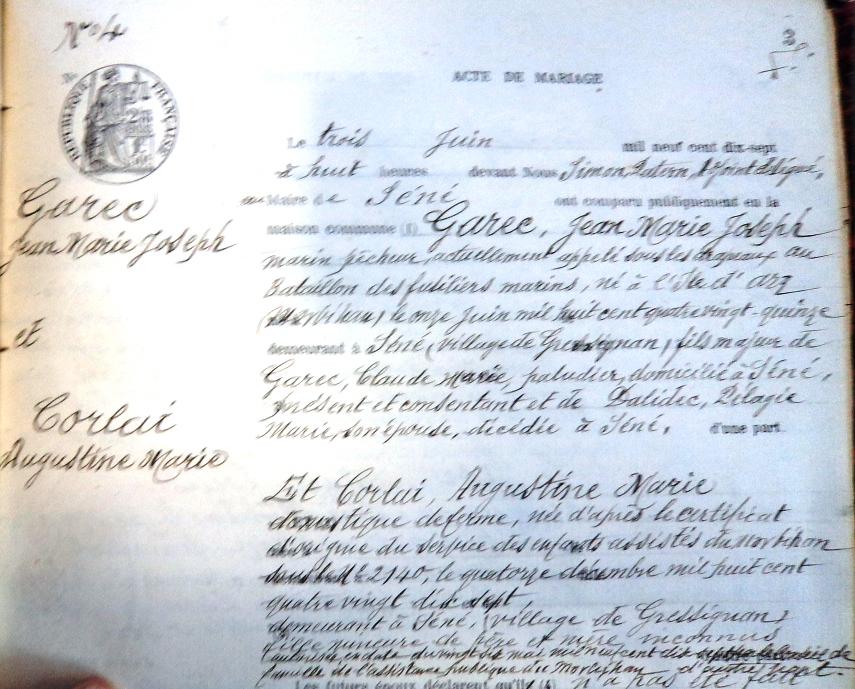 N° 4
3
N°
RÉPUBLIQUE FRANÇAISE
ACTE DE MARIAGE
Le trois Juin mil neuf cent dix-sept
à huit heures devant Nous Simon, Patern, Adjoint délégué,
Maire de Séné ont comparu publiquement en la
maison commune (1) Garec, Jean Marie Joseph
marin pêcheur, actuellement appelé sous les drapeaux au
Bataillon des fusiliers marins, né à l'Ile d'Arz
(Morbihan) le onze Juin mil huit cent quatre vingt-quinze
demeurant à Séné (village de Gressignan) fils majeur de
Garec, Claude Marie, paludier, domicilié à Séné,
présent et consentant et de Dalidec, Pélagie
Marie, son épouse, décédée à Séné, d'une part
Garec
Jean Marie Joseph
et
Corlai
Augustine Marie
Et Corlai, Augustine Marie
domestique de ferme, née d'après le certificat
d'origine du service des enfants assistés du Morbihan
sous le N° 2140, le quatorze décembre mil huit cent
quatre vingt dix sept,
demeurant à Séné, (village de Gressignan)
fille mineure de père et mère inconnus
autorisée en date du vingt six mai mil neuf cent dix sept de
famille de l'assistance publique du Morbihan d'autre part.
Les futurs époux déclarent qu'il (4) n'a pas été fait